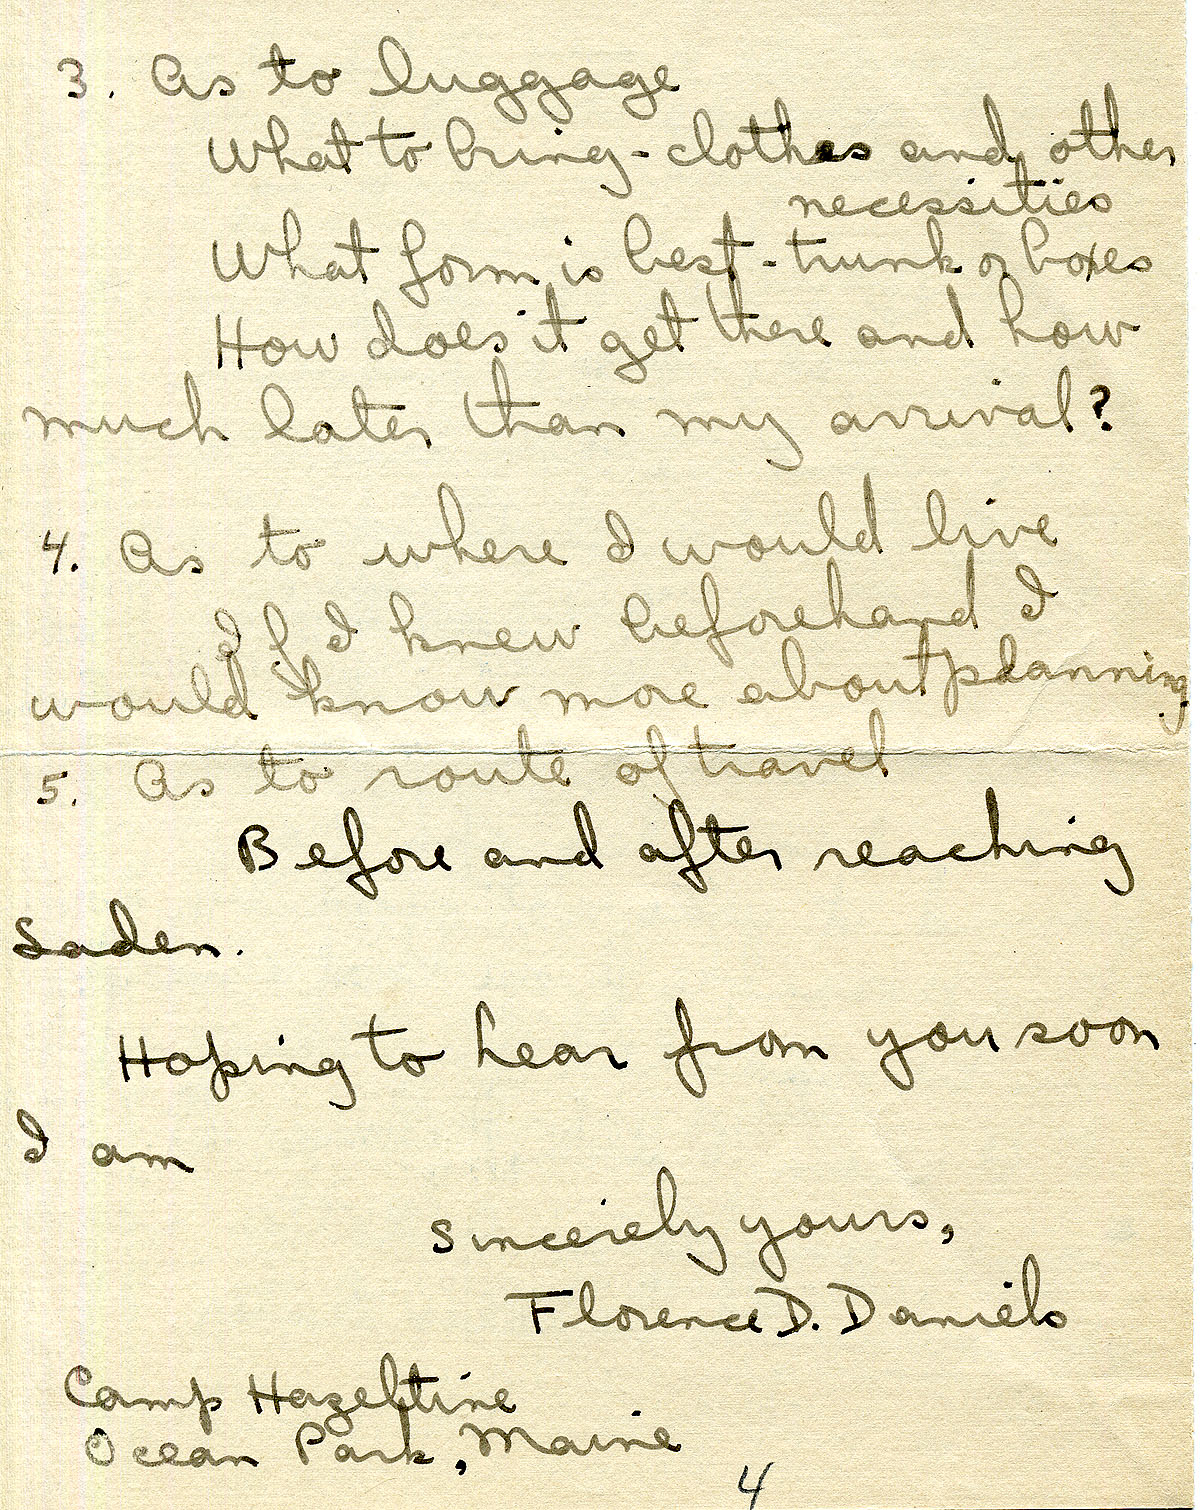 3. As to luggage
What to bring - clothes and other
necessities
What form is best - trunk or boxes
How does it get there and how
much later than my arrival?
4. As to where I would live
If I knew beforehand I
would know more about planning
5. As to route of travel
Before and after reaching
Saden.
Hoping to hear from you soon
I am
Sincerely yours,
Florence D. Daniels
Camp Hazeltine
Ocean Park, Maine
4